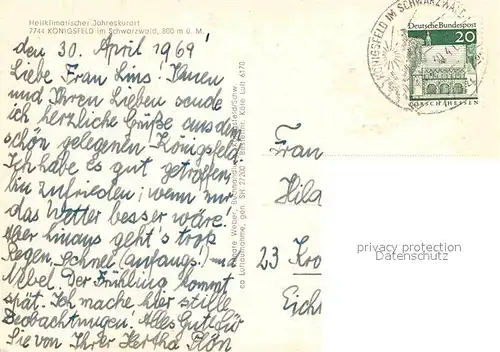 Heilklimatischer Jahreskurort
7744 KÖNIGSFELD im Schwarzwald, 800 m ü. M.
den 30. April 1969
Liebe Frau Lins. Ihnen
und Ihren Lieben sende
ich herzliche Grüße aus dem
schön gelegenen Königsfeld
Ich habe es gut getroffen
bin zufrieden; wenn nur
das Wetter besser wäre!
Aber hinaus geht's trotz
Regen, Schnee (anfangs) und
Nebel. Der Frühling kommt
spät. Ich mache hier stille
Beobachtungen! Alles Gute für
Sie von Ihrer Hertha Plön
KÖNIGSFELD IM SCHWARZWALD
Deutsche Bundespost
20
LORSCH/HESSEN
Frau
Hila
23 Kro
Eich
privacy protection
Datenschutz